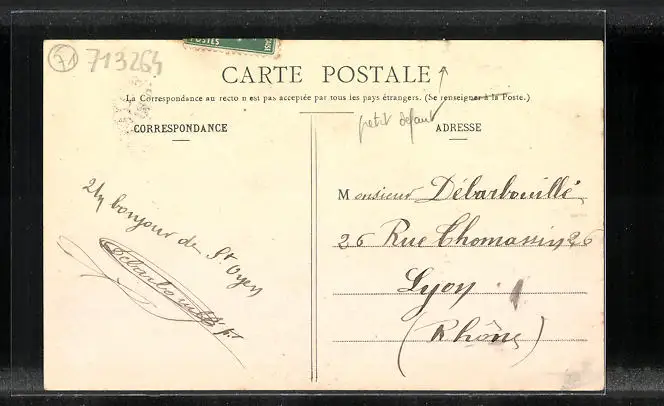 71 713264
POSTES
CARTE POSTALE
La Correspondance au recto n'est pas acceptée par tous les pays étrangers. (Se renseigner à la Poste.)
petit défaut
CORRESPONDANCE
ADRESSE
Un bonjour de St Oyen
Débarbouillé
Monsieur Débarbouillé
26 Rue Thomassin 26
Lyon
(Rhône)